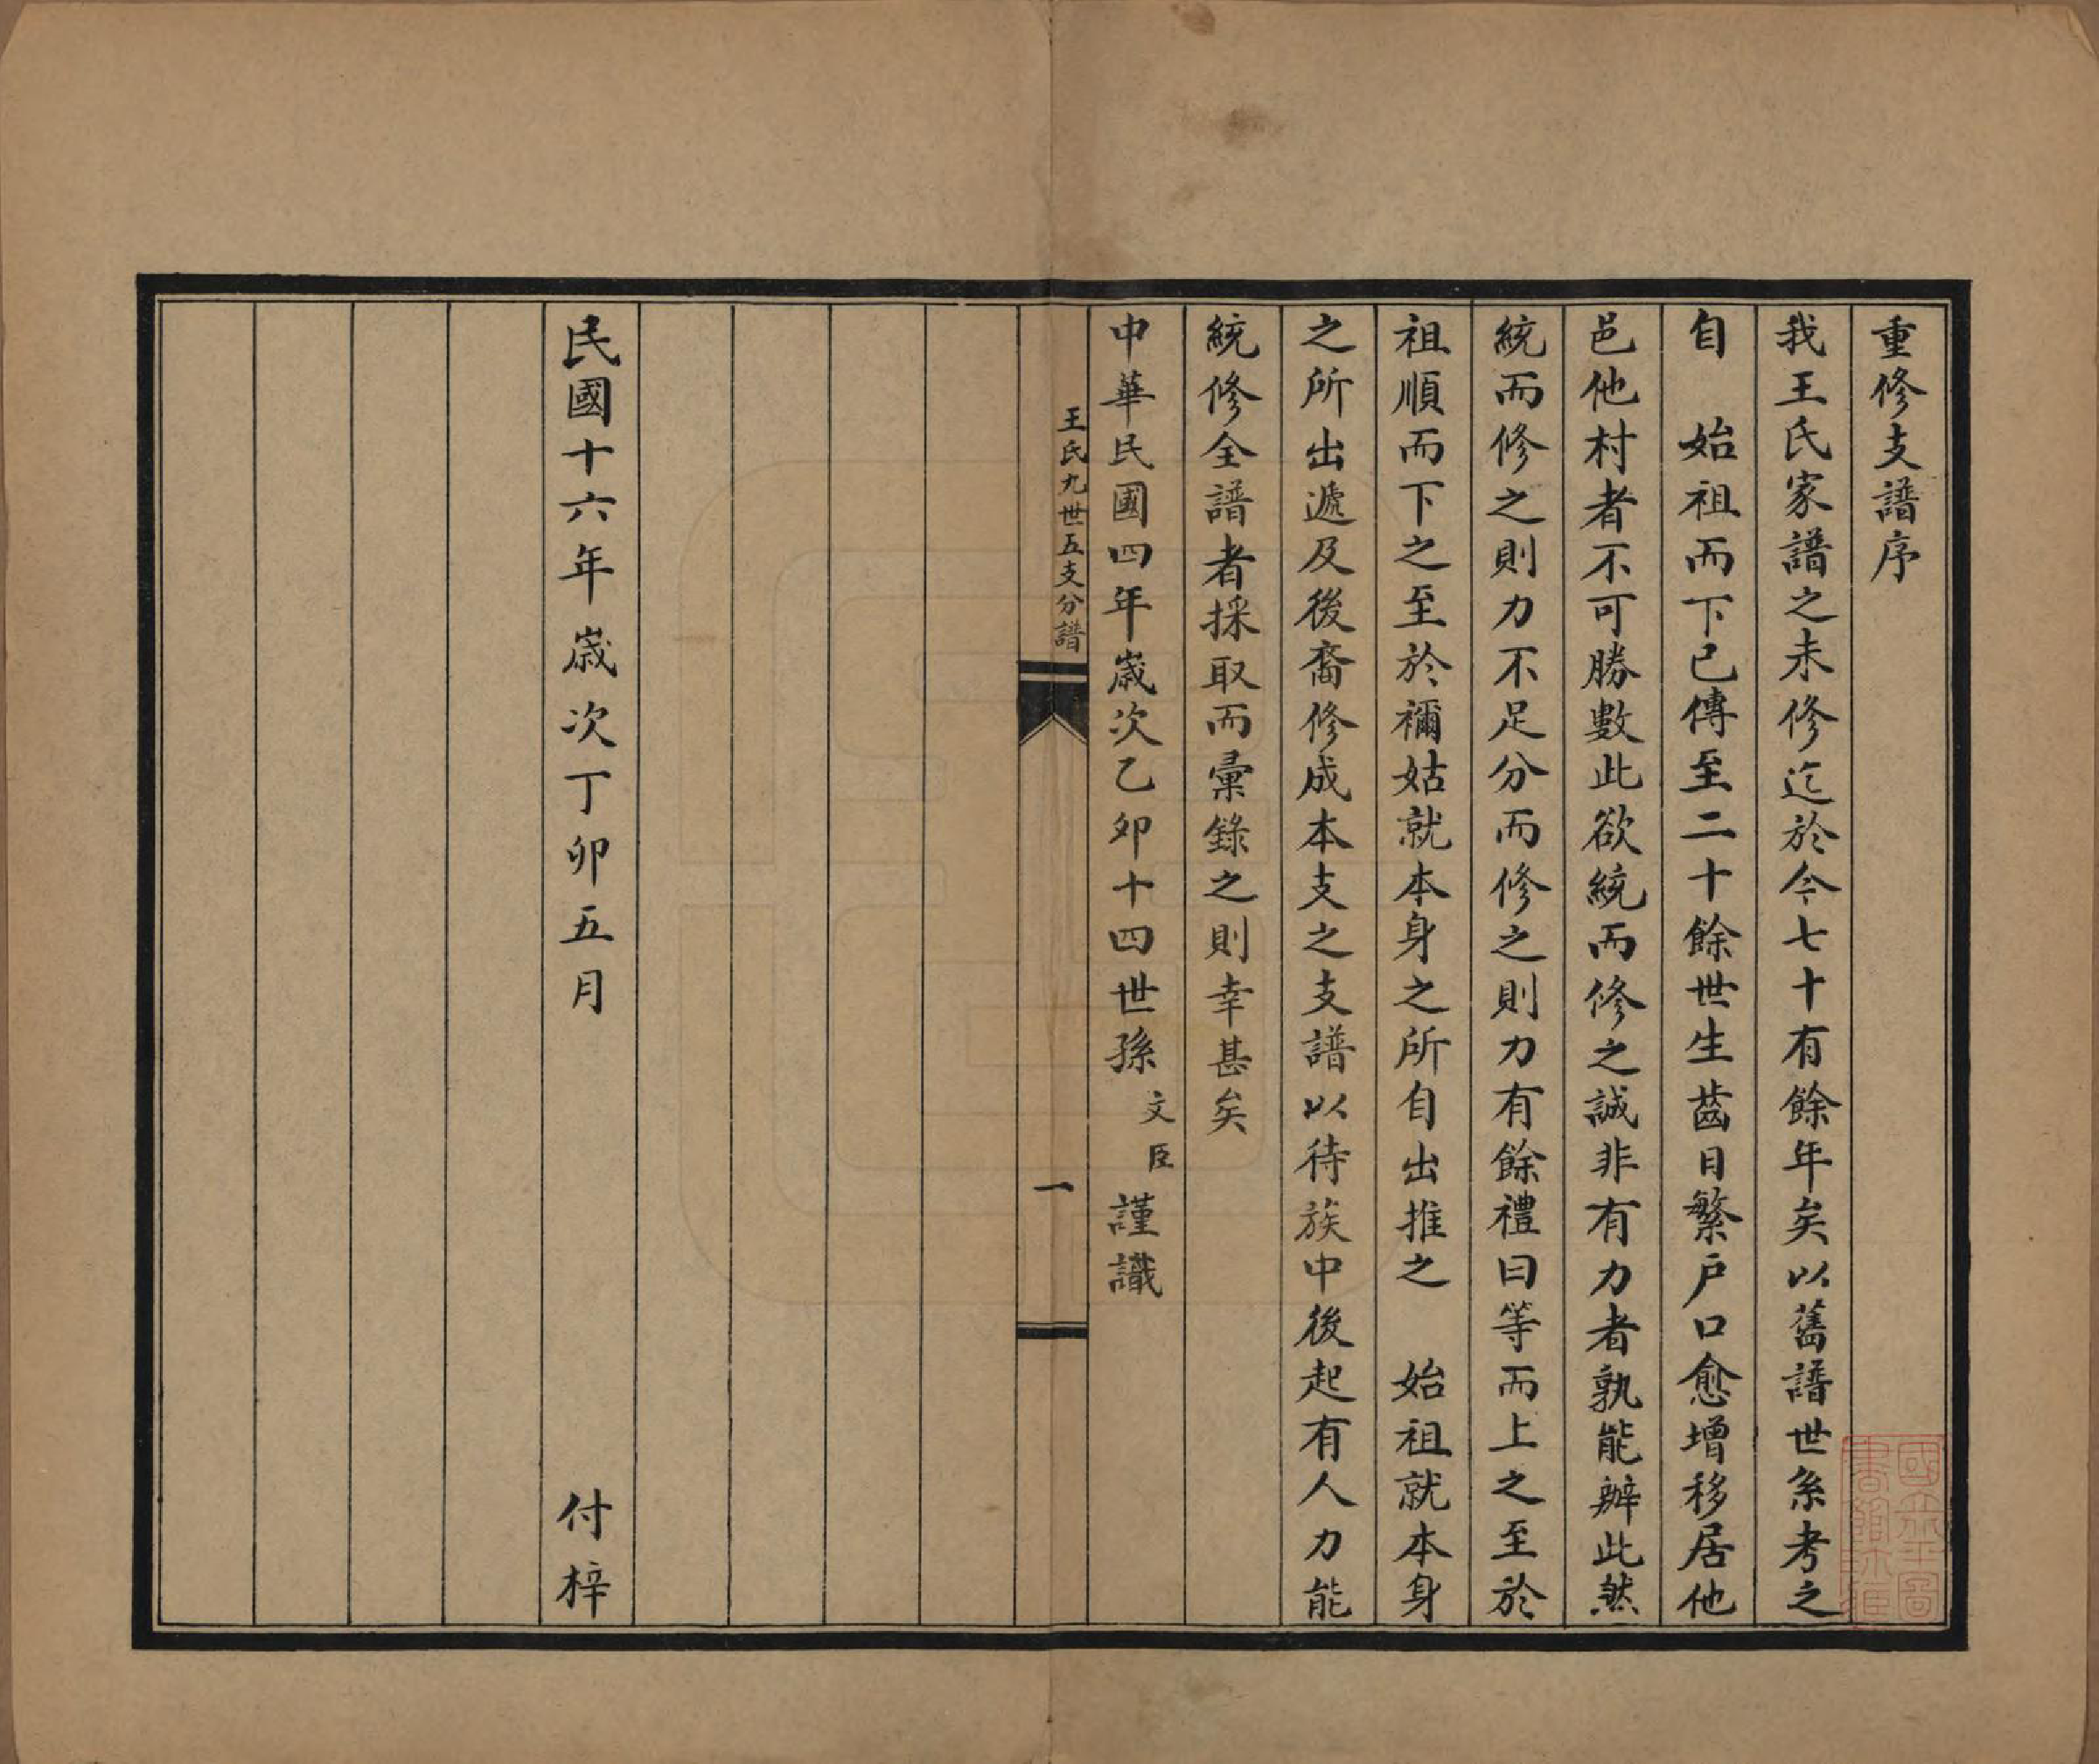 重修支譜序
我王氏家譜之未修迄於今七十有餘年矣以舊譜世系考之
自　始祖而下已傳至二十餘世生齒日繁戶口愈增移居他
邑他村者不可勝數此欲統而修之誠非有力者孰能辦此然
統而修之則力不足分而修之則力有餘禮曰等而上之至於
祖順而下之至於禰姑就本身之所自出推之　始祖就本身
之所出遞及後裔修成本支之支譜以待族中後起有人力能
統修全譜者採取而彙錄之則幸甚矣
中華民國四年歲次乙卯十四世孫 文臣 謹識
王氏九世五支分譜
一
民國十六年歲次丁卯五月　付梓